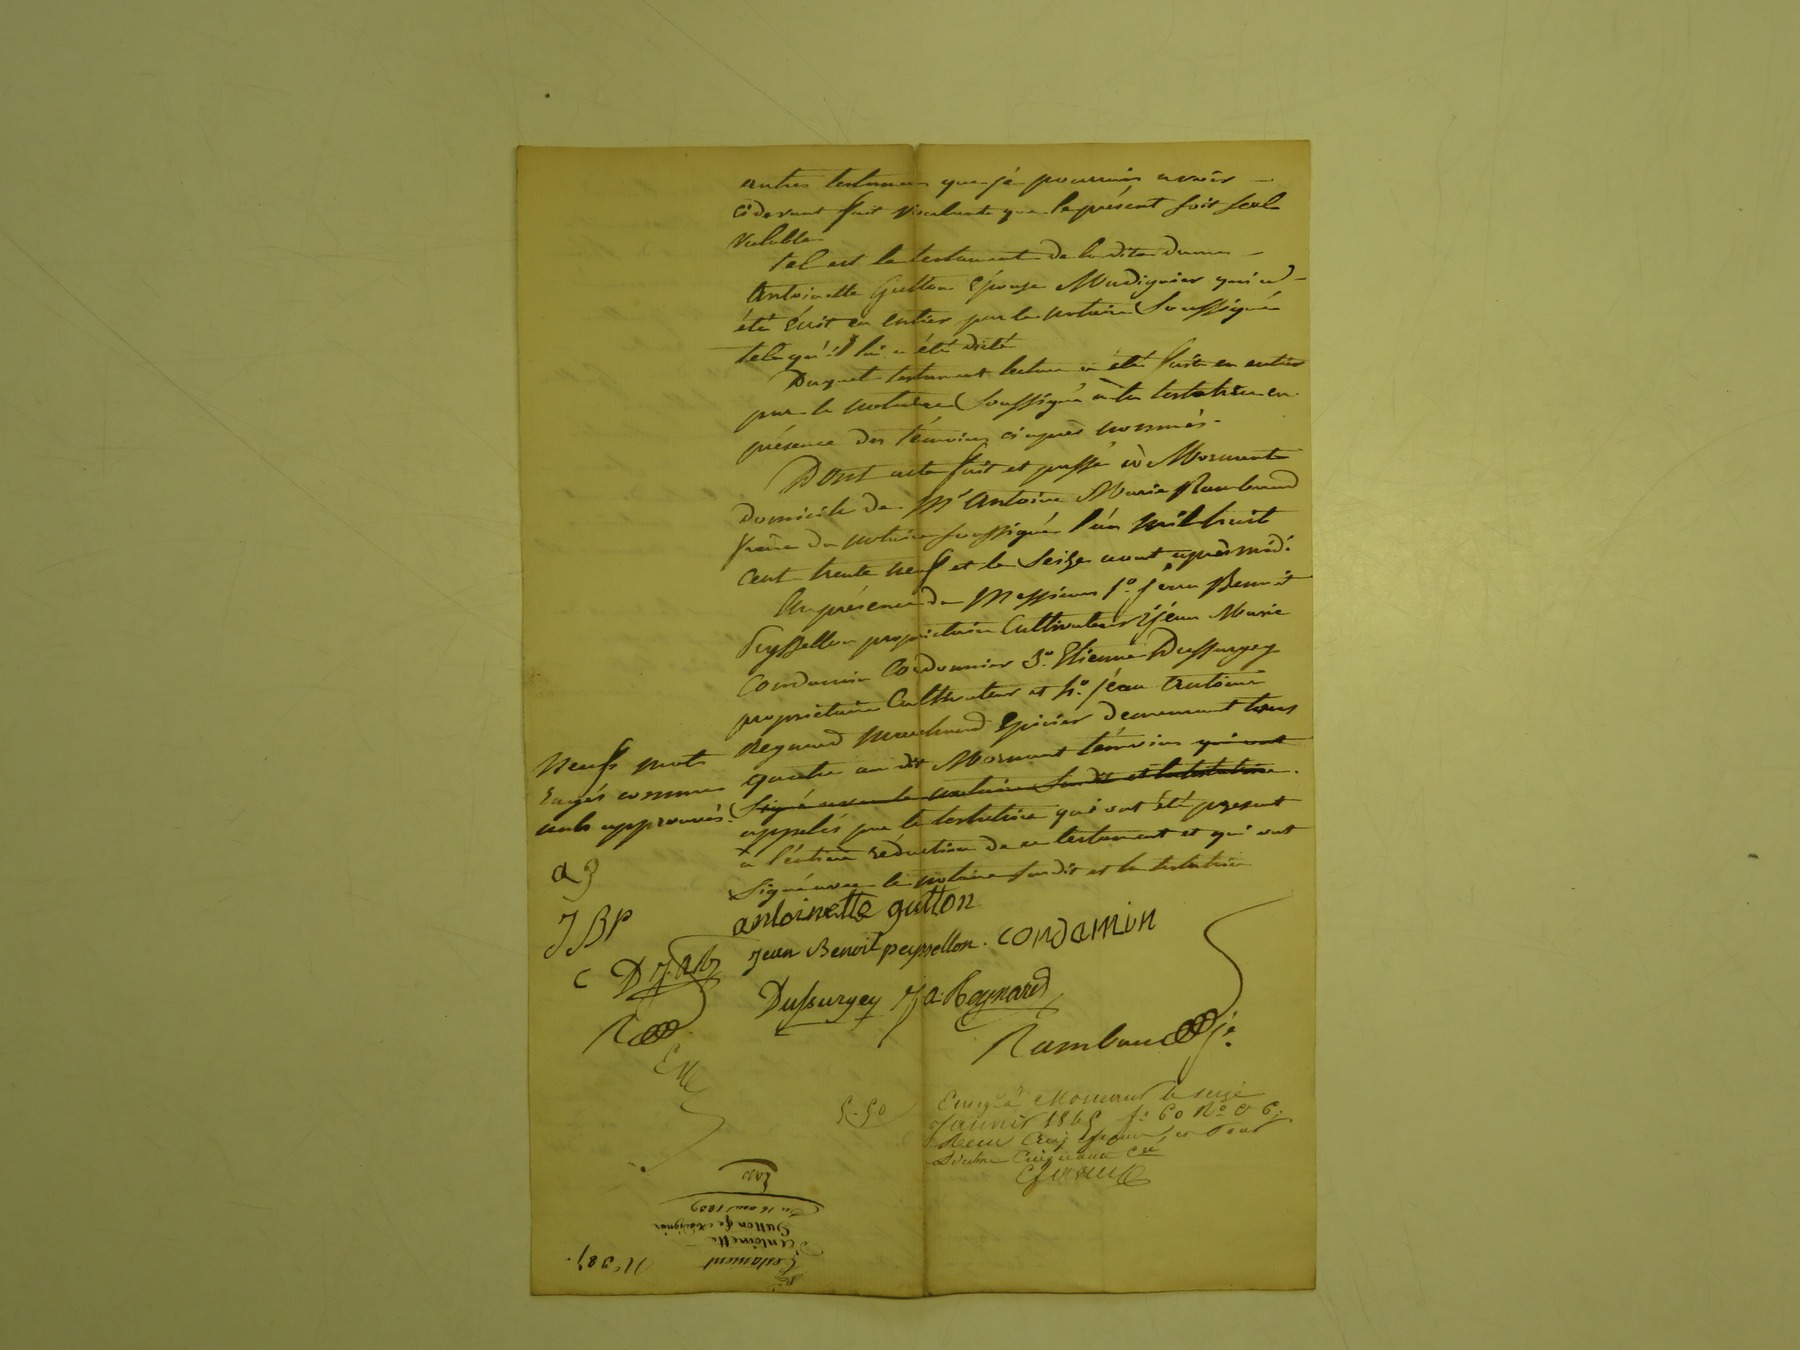 autres testamens que je pourrais avoir
cidevant fait voulant que le présent soit seul
valable
tel est le testament de la dite dame
Antoinette Gutton épouse Madignier qui a
été écrit en entier par le notaire Soussigné
tel qu'il lui a été dicté
Duquel testament lecture a été faite en entier
par le notaire Soussigné à la testatrice en
présence des témoins ci après nommés.
Dont acte fait et passé à Mornant
domicile de Mr Antoine Marie Rambaud
frère du notaire soussigné l'an mil huit
cent trente neuf et le seize aout après midi
En présence de Messieurs 1o. jean Benoit
Peyssellon propriétaire Cultivateur 2o jean Marie
Condamin Cordonnier 3o. Etienne Dussurgey
propriétaire Cultivateur et 4o. jean Antoine
Reynard Marchand Epicier demeurant tous
quatre au dit Mornant témoins qui ont
Signé avec le notaire susdit et la testatrice.
appelés par la testatrice qui ont été présent
à l'entière rédaction de ce testament et qui ont
Signé avec le notaire susdit et la testatrice
Neufs mots
rayés comme
nuls approuvés.
a g
J B P
C D J. a R
R
antoinette gutton
Jean Benoit peyssellon. condamin
Dussurgey J. a. Reynard
Rambaud je.
5-50
Enregé à Mornant le seize
Janvier 1845 fo 60 Ro C 6.
Reçu Cinq francs, et pour
Décime Cinquante ces
No 387.
Testament
d'antoinette
Gutton fe Madignier
Du 16 aout 1839